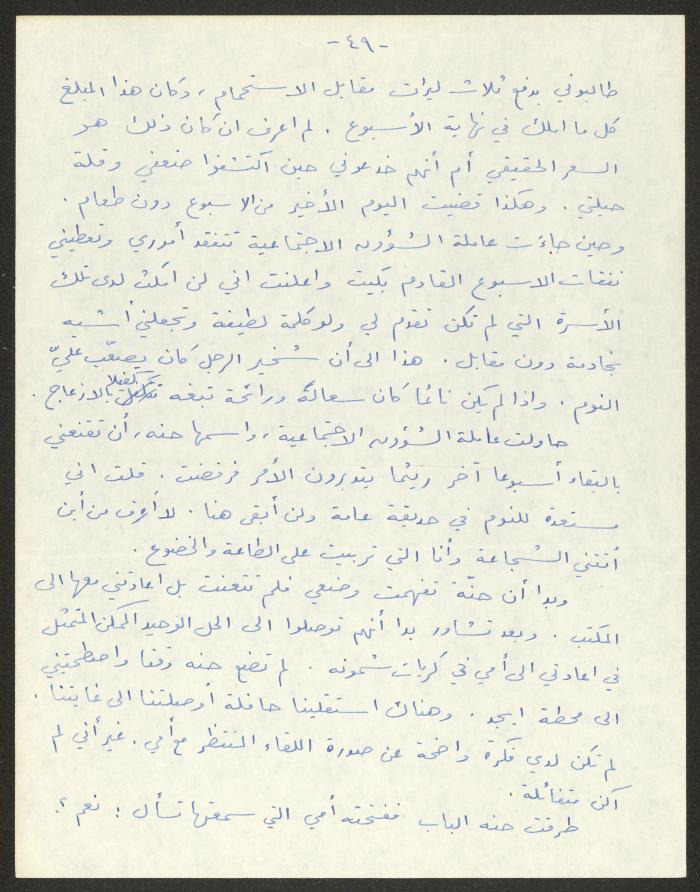 -٤٩-
طالبوني بدفع ثلاث ليرات مقابل الاستحمام، وكان هذا المبلغ
كل ما املك في نهاية الأسبوع. لم اعرف ان كان ذلك هو
السعر الحقيقي أم أنهم خدعوني حين اكتشفوا ضعفي وقلة
حيلتي. وهكذا قضيت اليوم الأخير من الاسبوع دون طعام.
وحين جاءت عاملة الشؤون الاجتماعية تتفقد أموري وتعطيني
نفقات الاسبوع القادم بكيت واعلنت اني لن امكث لدى تلك
الأسرة التي لم تكن تقدم لي ولو كلمة لطيفة وتجعلني أشبه
بخادمة دون مقابل. هذا الى أن شخير الرجل كان يصعّب عليّ
النوم. واذا لم يكن نائما كان سعاله ورائحة تبغه كفيلا بالازعاج.
حاولت عاملة الشؤون الاجتماعية، واسمها حنه، أن تقنعني
بالبقاء أسبوعا آخر ريثما يتدبرون الأمر فرفضت. قلت اني
مستعدة للنوم في حديقة عامة ولن أبقى هنا. لا أعرف من أين
أتتني الشجاعة وأنا التي تربيت على الطاعة والخضوع.
وبدا أن حنّة تفهمت وضعي فلم تتعنت بل اعادتني معها الى
المكتب. وبعد تشاور بدا أنهم توصلوا الى الحل الوحيد الممكن المتمثل
في اعادتي الى أمي في كريات شمونه. لم تضع حنه وقتا واصطحبتني
الى محطة ايجد. وهناك استقلينا حافلة أوصلتنا الى غايتنا.
لم تكن لدي فكرة واضحة عن صورة اللقاء المنتظر مع أمي. غير أني لم
اكن متفائلة.
طرقت حنه الباب ففتحته أمي التي سمعتها تسأل: نعم؟